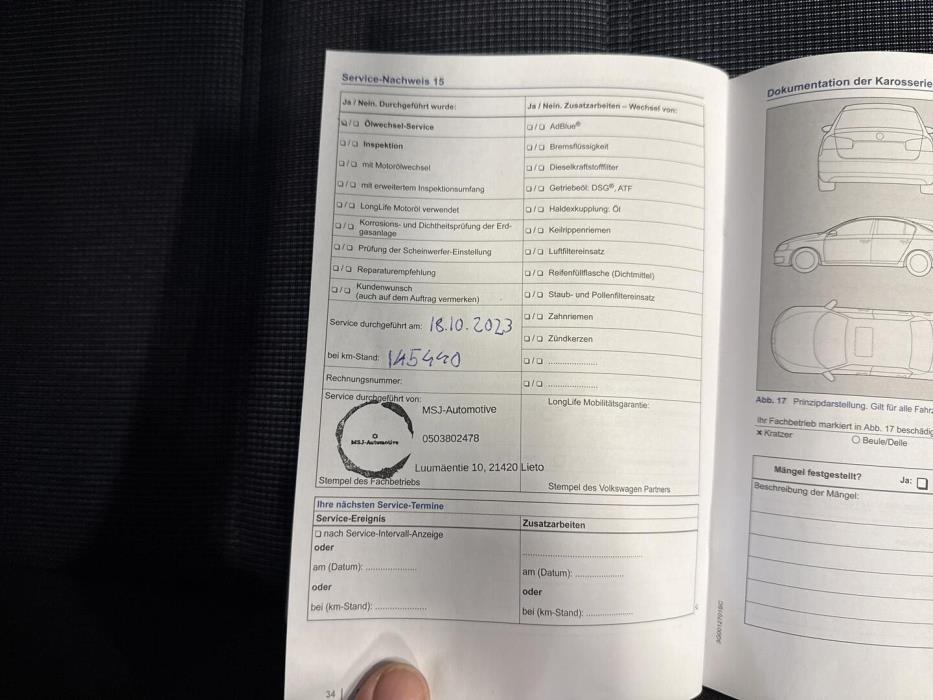 Service-Nachweis 15
Ja / Nein. Durchgeführt wurde:
❑/❑ Ölwechsel-Service
❑/❑ Inspektion
❑/❑ mit Motorölwechsel
❑/❑ mit erweitertem Inspektionsumfang
❑/❑ LongLife Motoröl verwendet
❑/❑ Korrosions- und Dichtheitsprüfung der Erd-
gasanlage
❑/❑ Prüfung der Scheinwerfer-Einstellung
❑/❑ Reparaturempfehlung
❑/❑ Kundenwunsch
(auch auf dem Auftrag vermerken)
Service durchgeführt am: 18.10.2023
bei km-Stand: 145440
Rechnungsnummer:
Service durchgeführt von:
MSJ-Automotive
MSJ-Automotive
0503802478
Luumäentie 10, 21420 Lieto
Stempel des Fachbetriebs
Ja / Nein. Zusatzarbeiten – Wechsel von:
❑/❑ AdBlue®
❑/❑ Bremsflüssigkeit
❑/❑ Dieselkraftstofffilter
❑/❑ Getriebeöl: DSG®, ATF
❑/❑ Haldexkupplung: Öl
❑/❑ Keilrippenriemen
❑/❑ Luftfiltereinsatz
❑/❑ Reifenfüllflasche (Dichtmittel)
❑/❑ Staub- und Pollenfiltereinsatz
❑/❑ Zahnriemen
❑/❑ Zündkerzen
❑/❑ ..................
❑/❑ ..................
LongLife Mobilitätsgarantie:
Stempel des Volkswagen Partners
Ihre nächsten Service-Termine
Service-Ereignis
❑ nach Service-Intervall-Anzeige
oder
am (Datum): ..................
oder
bei (km-Stand): ..................
Zusatzarbeiten
..........................................
am (Datum): ..................
oder
bei (km-Stand): ..................
34
3G0012701BC
Dokumentation der Karosserie
Abb. 17 Prinzipdarstellung. Gilt für alle Fahr
Ihr Fachbetrieb markiert in Abb. 17 beschädig
× Kratzer
○ Beule/Delle
Mängel festgestellt?
Ja: ❑
Beschreibung der Mängel: